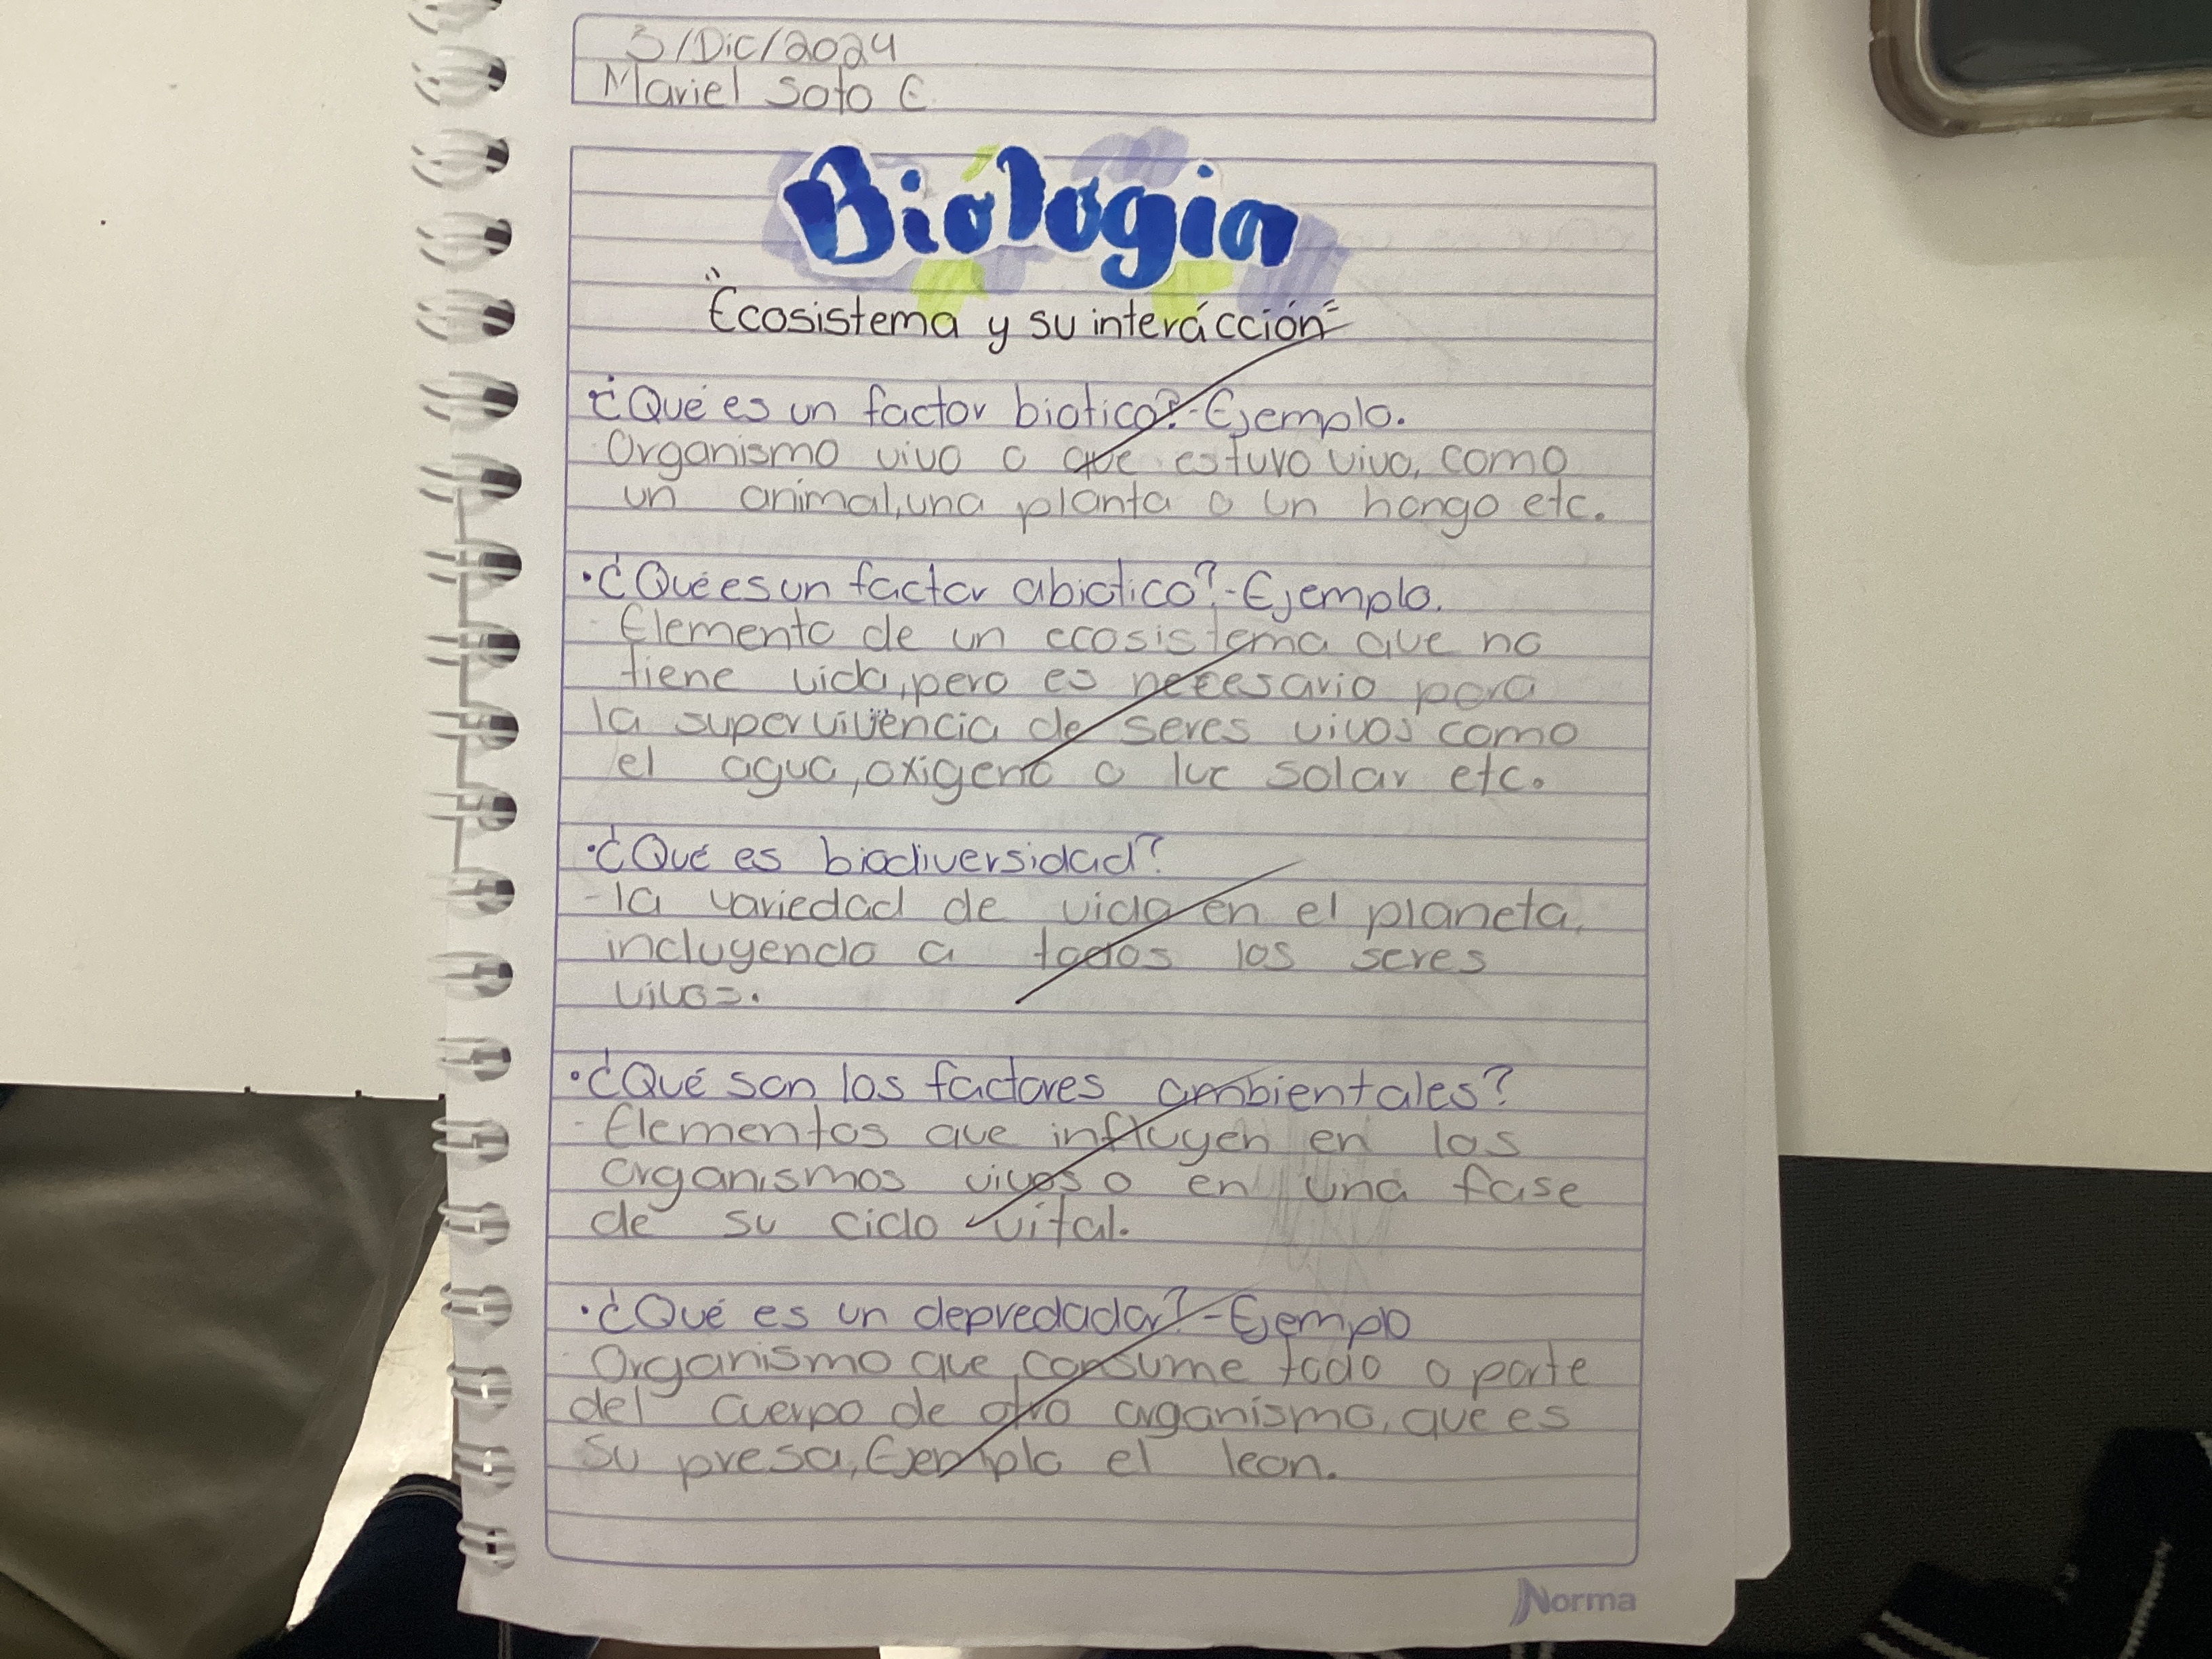 3/Dic/2024
Mariel Soto E.
Biología
"Ecosistema y su interácción"
·¿Qué es un factor biotico?-Ejemplo.
Organismo vivo o que estuvo vivo, como
un animal, una planta o un hongo etc.
·¿Qué es un factor abiotico?-Ejemplo.
- Elemento de un ecosistema que no
tiene vida, pero es necesario para
la supervivencia de seres vivos como
el agua, oxigeno o luz solar etc.
·¿Qué es biodiversidad?
-la variedad de vida en el planeta,
incluyendo a todos los seres
vivos.
·¿Qué son los factores ambientales?
- Elementos que influyen en los
organismos vivos o en una fase
de su ciclo vital.
·¿Qué es un depredador?-Ejemplo
Organismo que consume todo o parte
del cuerpo de otro organismo, que es
su presa, Ejemplo el leon.
Norma